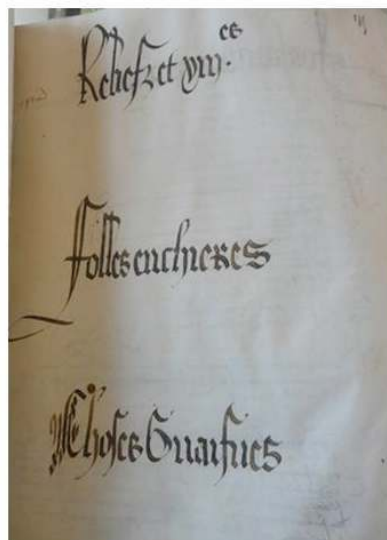 Reliefz et xiij.es
Folles encheres
Choses Guaifues